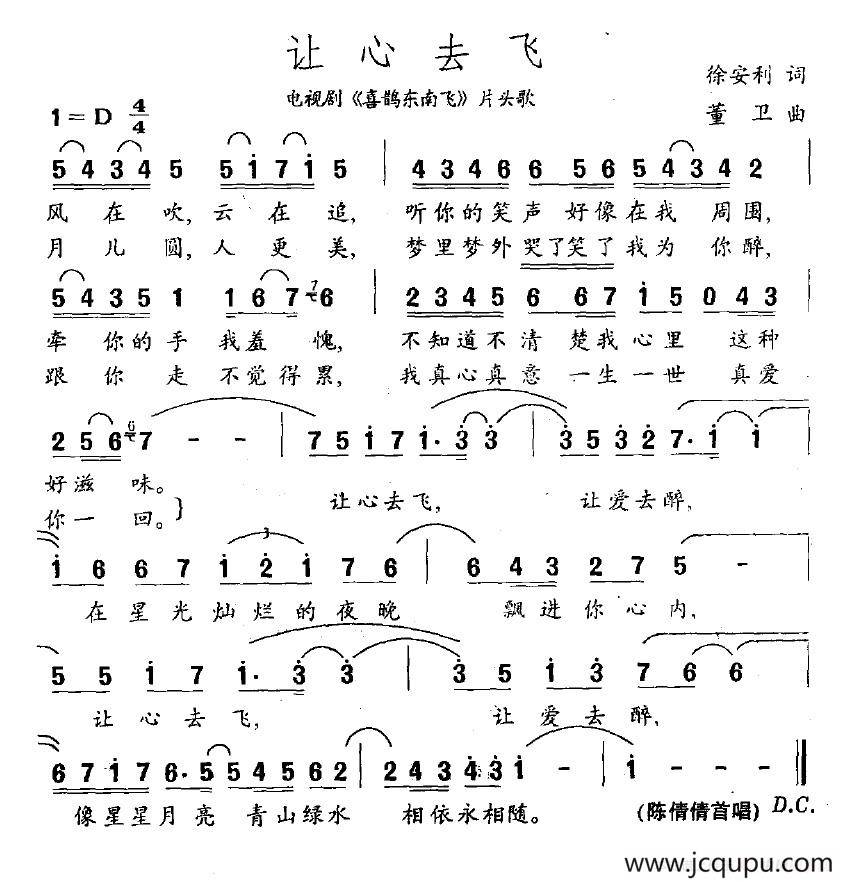 让心去飞
电视剧《喜鹊东南飞》片头歌
徐安利 词
董卫 曲
1=D 4/4
5 4 3 4 5 5 1 7 1 5 | 4 3 4 6 6 5 6 5 4 3 4 2
风在吹,云在追, 听你的笑声好像在我周围,
月儿圆,人更美, 梦里梦外哭了笑了我为你醉,
5 4 3 5 1 1 6 7 7 6 | 2 3 4 5 6 6 7 1 5 0 4 3
牵你的手我羞愧, 不知道不清楚我心里这种
跟你走不觉得累, 我真心真意一生一世真爱
2 5 6 6 7 - - | 7 5 1 7 1· 3 3 | 3 5 3 2 7· 1 1
好滋味。
你一回。} 让心去飞, 让爱去醉,
1 6 6 7 1 2 1 7 6 | 6 4 3 2 7 5 -
3
在星光灿烂的夜晚 飘进你心内,
5 5 1 7 1· 3 3 | 3 5 1 3 7 6 6
让心去飞, 让爱去醉,
6 7 1 7 6· 5 5 4 5 6 2 | 2 4 3 4 3 1 - | 1 - ‖
像星星月亮青山绿水相依永相随。
(陈倩倩首唱) D.C.
www.jcqupu.com